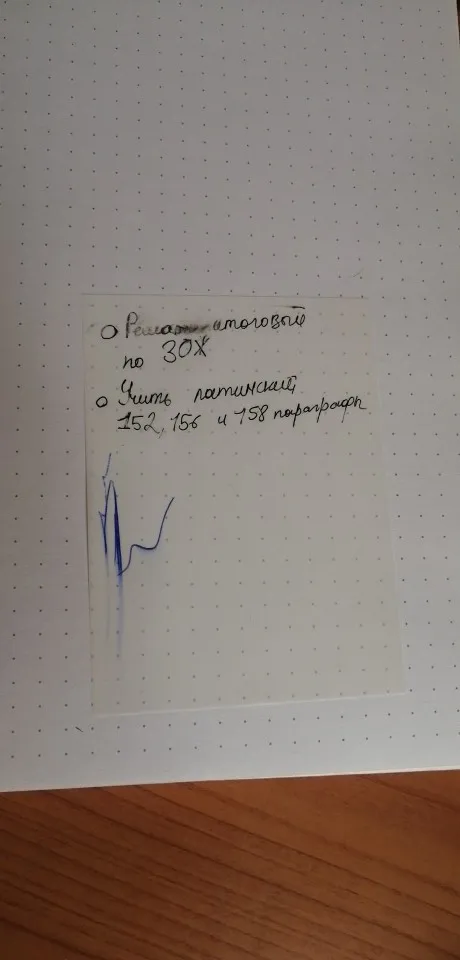 Решать итоговый
по ЗОЖ
Учить латинский
152, 156 и 158 параграфы